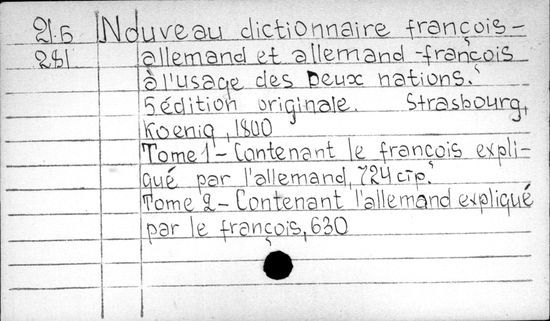 21.б Nouveau dictionnaire françois-
281 allemand et allemand-françois
à l'usage des Deux nations.
5 édition originale. Strasbourg,
Koenig, 1800
Tome 1 - Contenant le françois expli-
qué par l'allemand, 724 стр.
Tome 2 - Contenant l'allemand expliqué
par le françois, 630